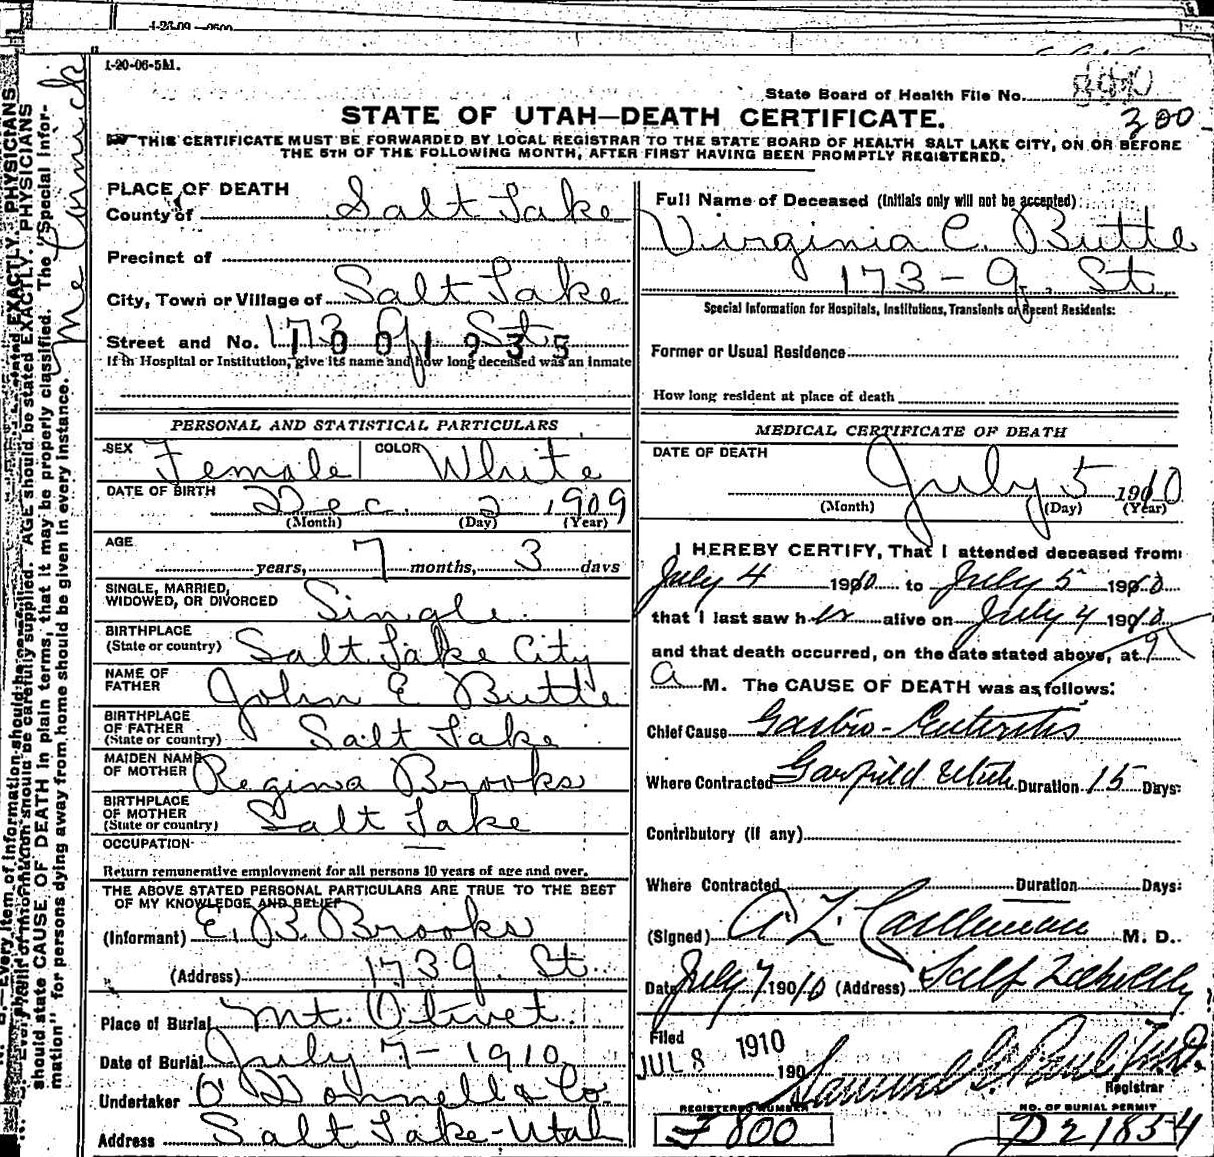 1-26-09
1-20-06-5M.
State Board of Health File No.
300
STATE OF UTAH—DEATH CERTIFICATE.
THIS CERTIFICATE MUST BE FORWARDED BY LOCAL REGISTRAR TO THE STATE BOARD OF HEALTH SALT LAKE CITY, ON OR BEFORE
THE 5TH OF THE FOLLOWING MONTH, AFTER FIRST HAVING BEEN PROMPTLY REGISTERED.
PLACE OF DEATH
County of Salt Lake
Precinct of
City, Town or Village of Salt Lake
Street and No. 173 G. St.
1001935
If in Hospital or Institution, give its name and how long deceased was an inmate
PERSONAL AND STATISTICAL PARTICULARS
SEX Female COLOR White
DATE OF BIRTH Dec. 2 1909
(Month) (Day) (Year)
AGE
years, 7 months, 3 days
SINGLE, MARRIED,
WIDOWED, OR DIVORCED Single
BIRTHPLACE
(State or country) Salt Lake City
NAME OF
FATHER John E Buttle
BIRTHPLACE
OF FATHER
(State or country) Salt Lake
MAIDEN NAME
OF MOTHER Regina Brooks
BIRTHPLACE
OF MOTHER
(State or country) Salt Lake
OCCUPATION —
Return remunerative employment for all persons 10 years of age and over.
THE ABOVE STATED PERSONAL PARTICULARS ARE TRUE TO THE BEST
OF MY KNOWLEDGE AND BELIEF
(Informant) E. B. Brooks
(Address) 173 G. St.
Place of Burial Mt. Olivet.
Date of Burial July 7 - 1910
Undertaker O'Donnell & Co.
Address Salt Lake-Utah
Full Name of Deceased (Initials only will not be accepted)
Virginia C. Buttle
173 - G. St
Special Information for Hospitals, Institutions, Transients or Recent Residents:
Former or Usual Residence
How long resident at place of death
MEDICAL CERTIFICATE OF DEATH
DATE OF DEATH
July 5 1910
(Month) (Day) (Year)
I HEREBY CERTIFY, That I attended deceased from
July 4 1910 to July 5 1910
that I last saw her alive on July 4 1910
and that death occurred, on the date stated above, at 9
A M. The CAUSE OF DEATH was as follows:
Chief Cause Gastro-Enteritis
Where Contracted Garfield Utah Duration 15 Days
Contributory (if any)
Where Contracted Duration Days
(Signed) M. D.
Date July 7 1910 (Address) Salt Lake City
Filed
JUL 8 1910
190
Registrar
REGISTERED NUMBER
F 800
NO. OF BURIAL PERMIT
D 21854
should state CAUSE OF DEATH in plain terms, that it may be properly classified. The "Special Infor-
mation" for persons dying away from home should be given in every instance.